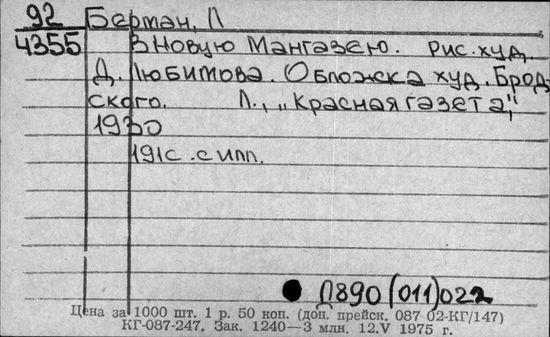 92 Берман, Л
4355 В Новую Мангазею. Рис. худ.
Д. Любимова. Обложка худ. Брод
ского. Л., „Красная газета",
1930
191с. с илл.
Д890(011)022
Цена за 1000 шт. 1 р. 50 коп. (доп. прейск. 087 02-КГ/147)
КГ-087-247. Зак. 1240—3 млн. 12.V 1975 г.